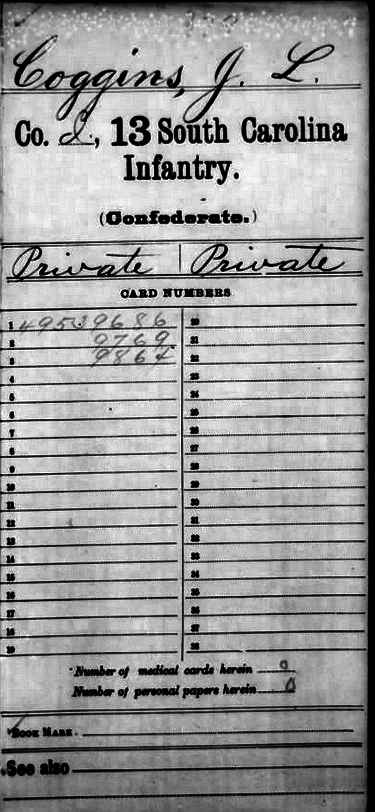 Coggins, J. L.
Co. I, 13 South Carolina
Infantry.
(Confederate.)
Private | Private
CARD NUMBERS.
1 49539686 20
2 9769 21
3 9864 22
4 23
5 24
6 25
7 26
8 27
9 28
10 29
11 30
12 31
13 32
14 33
15 34
16 35
17 36
18 37
19 38
Number of medical cards herein 0
Number of personal papers herein 0
BOOK MARK:
See also